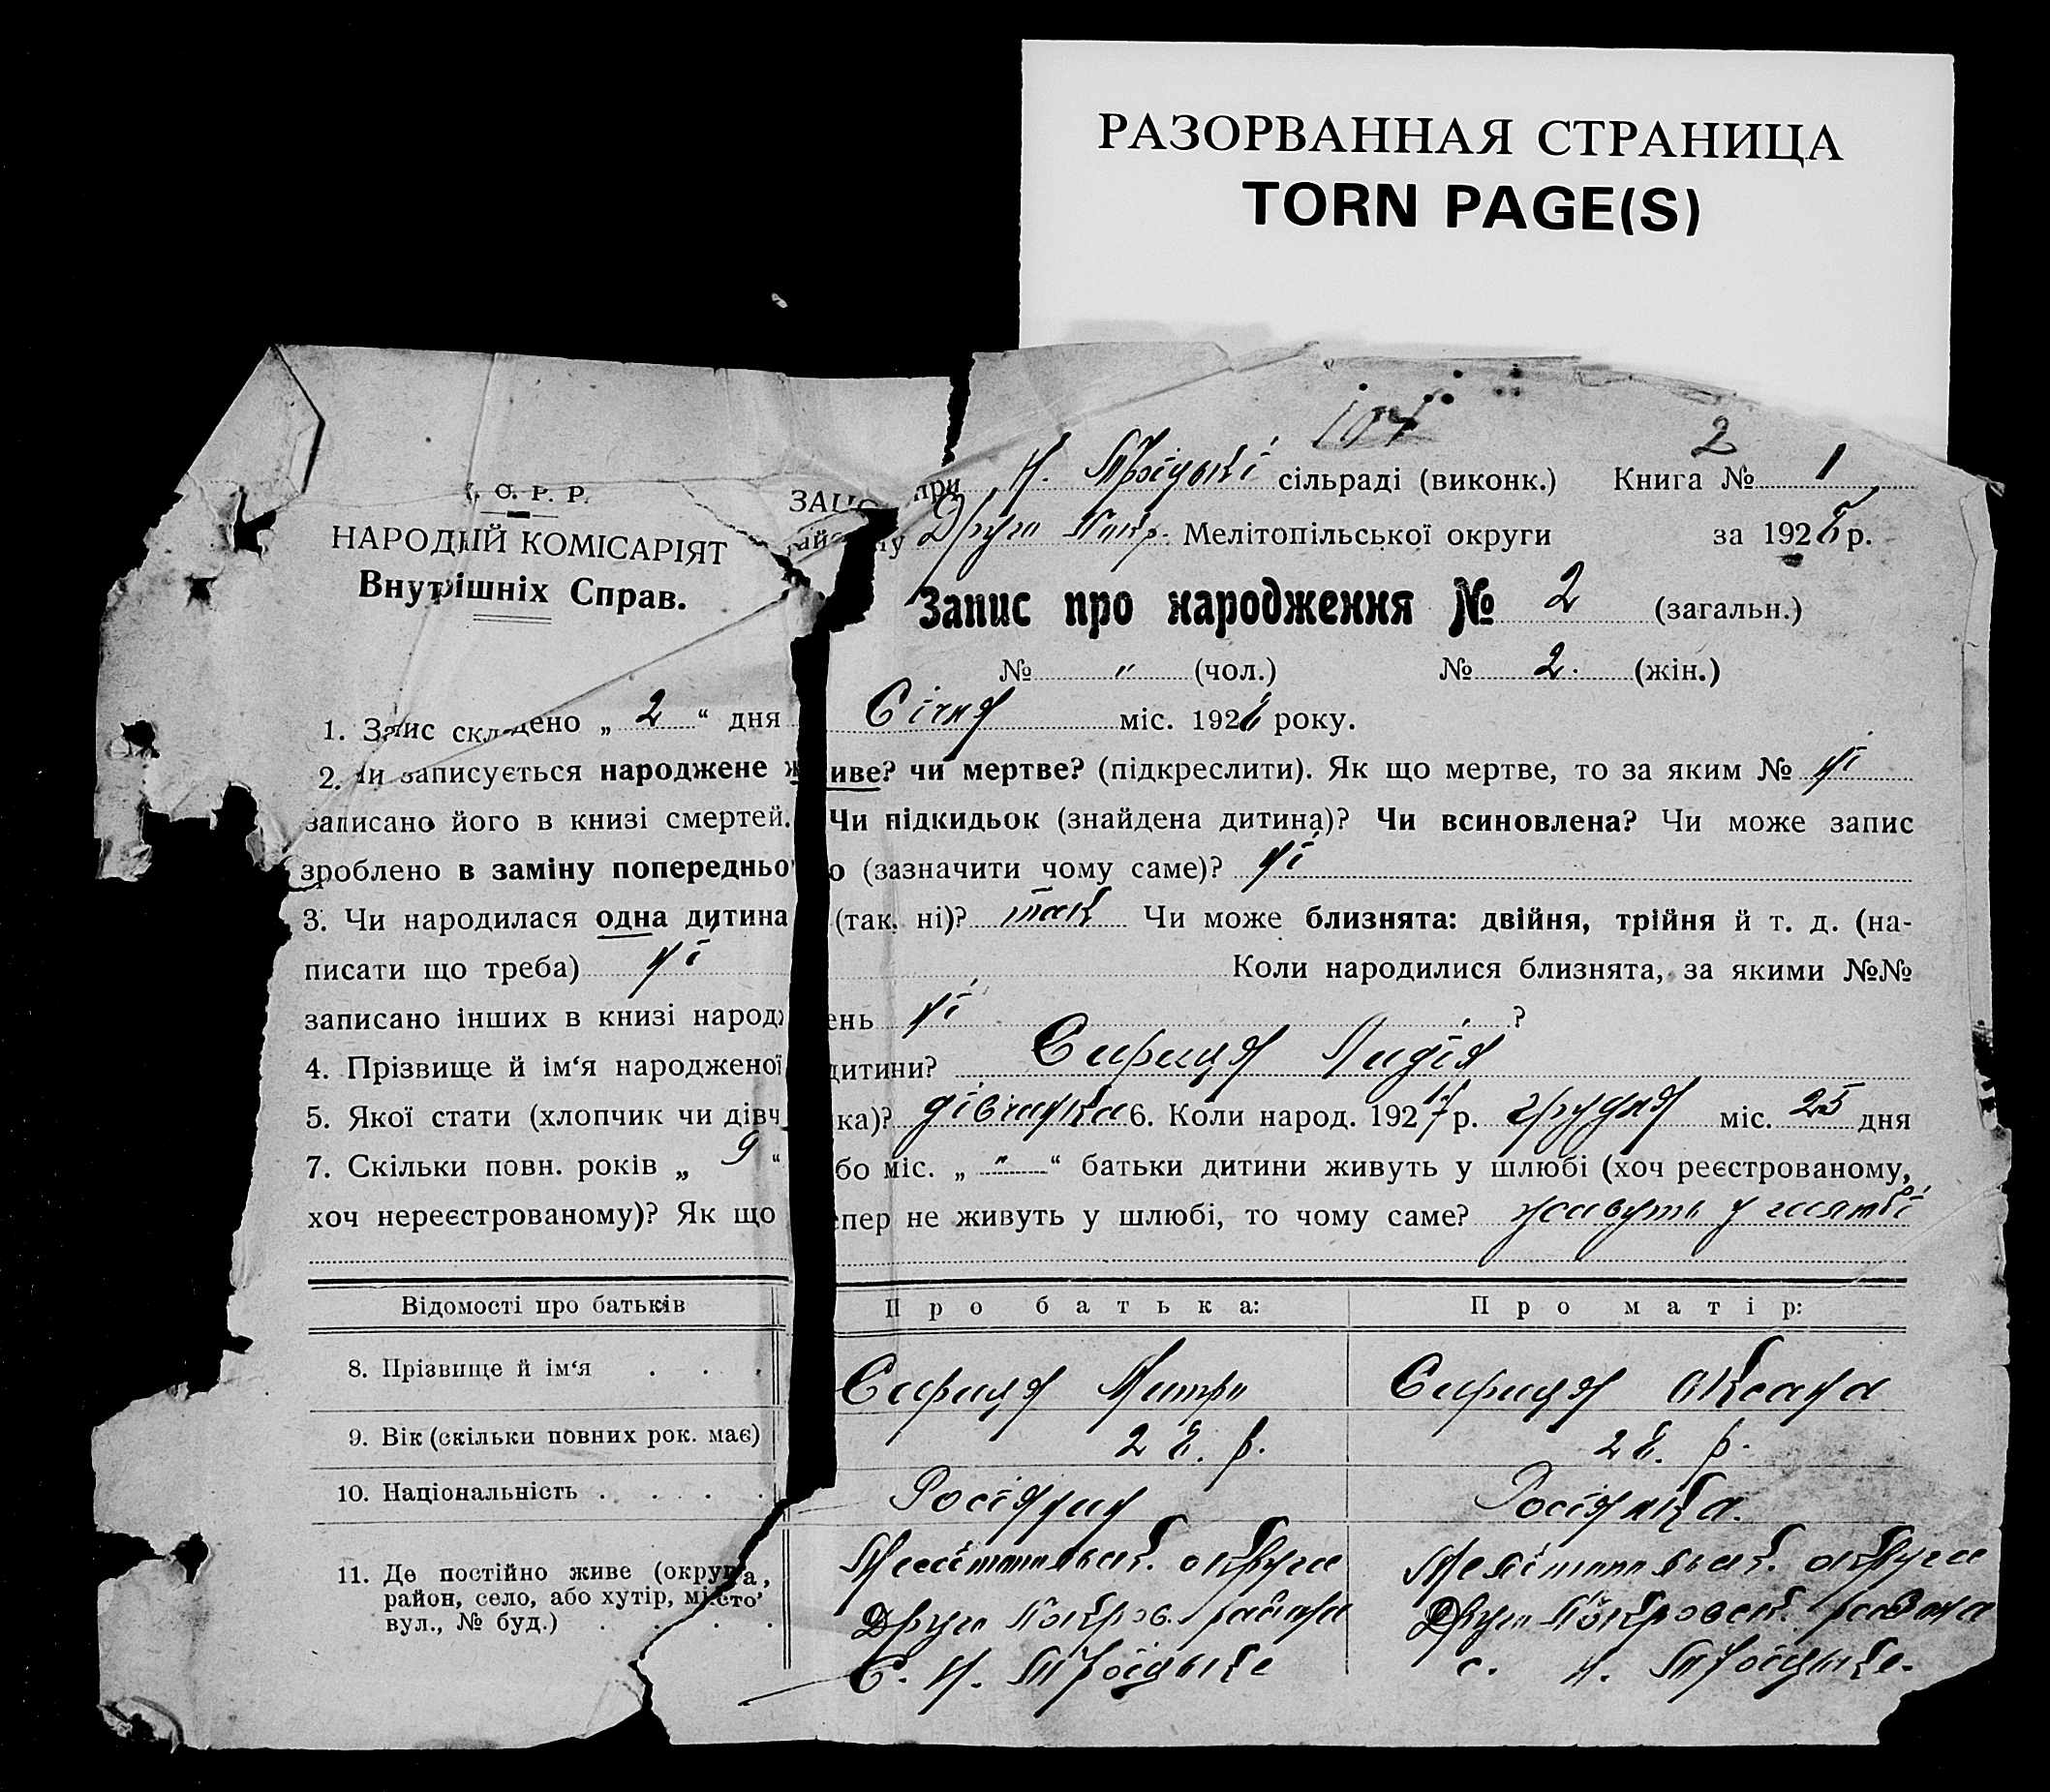 РАЗОРВАННАЯ СТРАНИЦА
TORN PAGE(S)
2
при Н. Троіцькі сільраді (виконк.) Книга № 1
О. Р. Р. ЗАЦС
НАРОДНИЙ КОМІСАРІЯТ району Друго Покр. Мелітопільської округи за 1928 р.
Внутрішніх Справ.
Запис про народження № 2 (загальн.)
№ „ (чол.) № 2. (жін.)
1. Запис складено „ 2 “ дня Січня міс. 1928 року.
2. Чи записується народжене живе? чи мертве? (підкреслити). Як що мертве, то за яким № ні
записано його в книзі смертей. Чи підкидьок (знайдена дитина)? Чи всиновлена? Чи може запис
зроблено в заміну попереднього (зазначити чому саме)? ні
3. Чи народилася одна дитина (так, ні)? так Чи може близнята: двійня, трійня й т. д. (на-
писати що треба) ні Коли народилися близнята, за якими №№
записано інших в книзі народжень ні ?
4. Прізвище й ім‘я народженої дитини? Сириця Лидія
5. Якої стати (хлопчик чи дівчинка)? дівчинка 6. Коли народ. 1927 р. грудня міс. 25 дня
7. Скільки повн. років „ 9 “ або міс. „ „ “ батьки дитини живуть у шлюбі (хоч реєстрованому,
хоч нереєстрованому)? Як що тепер не живуть у шлюбі, то чому саме? живуть у шлюбі
Відомості про батьків Про батька: Про матір:
8. Прізвище й ім‘я . . . Сириця Митро Сириця Оксана
9. Вік (скільки повних рок. має) 28. р. 28. р.
10. Національність . . . . . Росіянин Росіянка.
11. Де постійно живе (округа, Мелітопільськ. округи Мелітопільськ. округи
район, село, або хутір, місто, Друго Покров. района Друго Покровськ. района
вул., № буд.) . . . . С. Н. Троіцьке с. Н. Троіцьке.